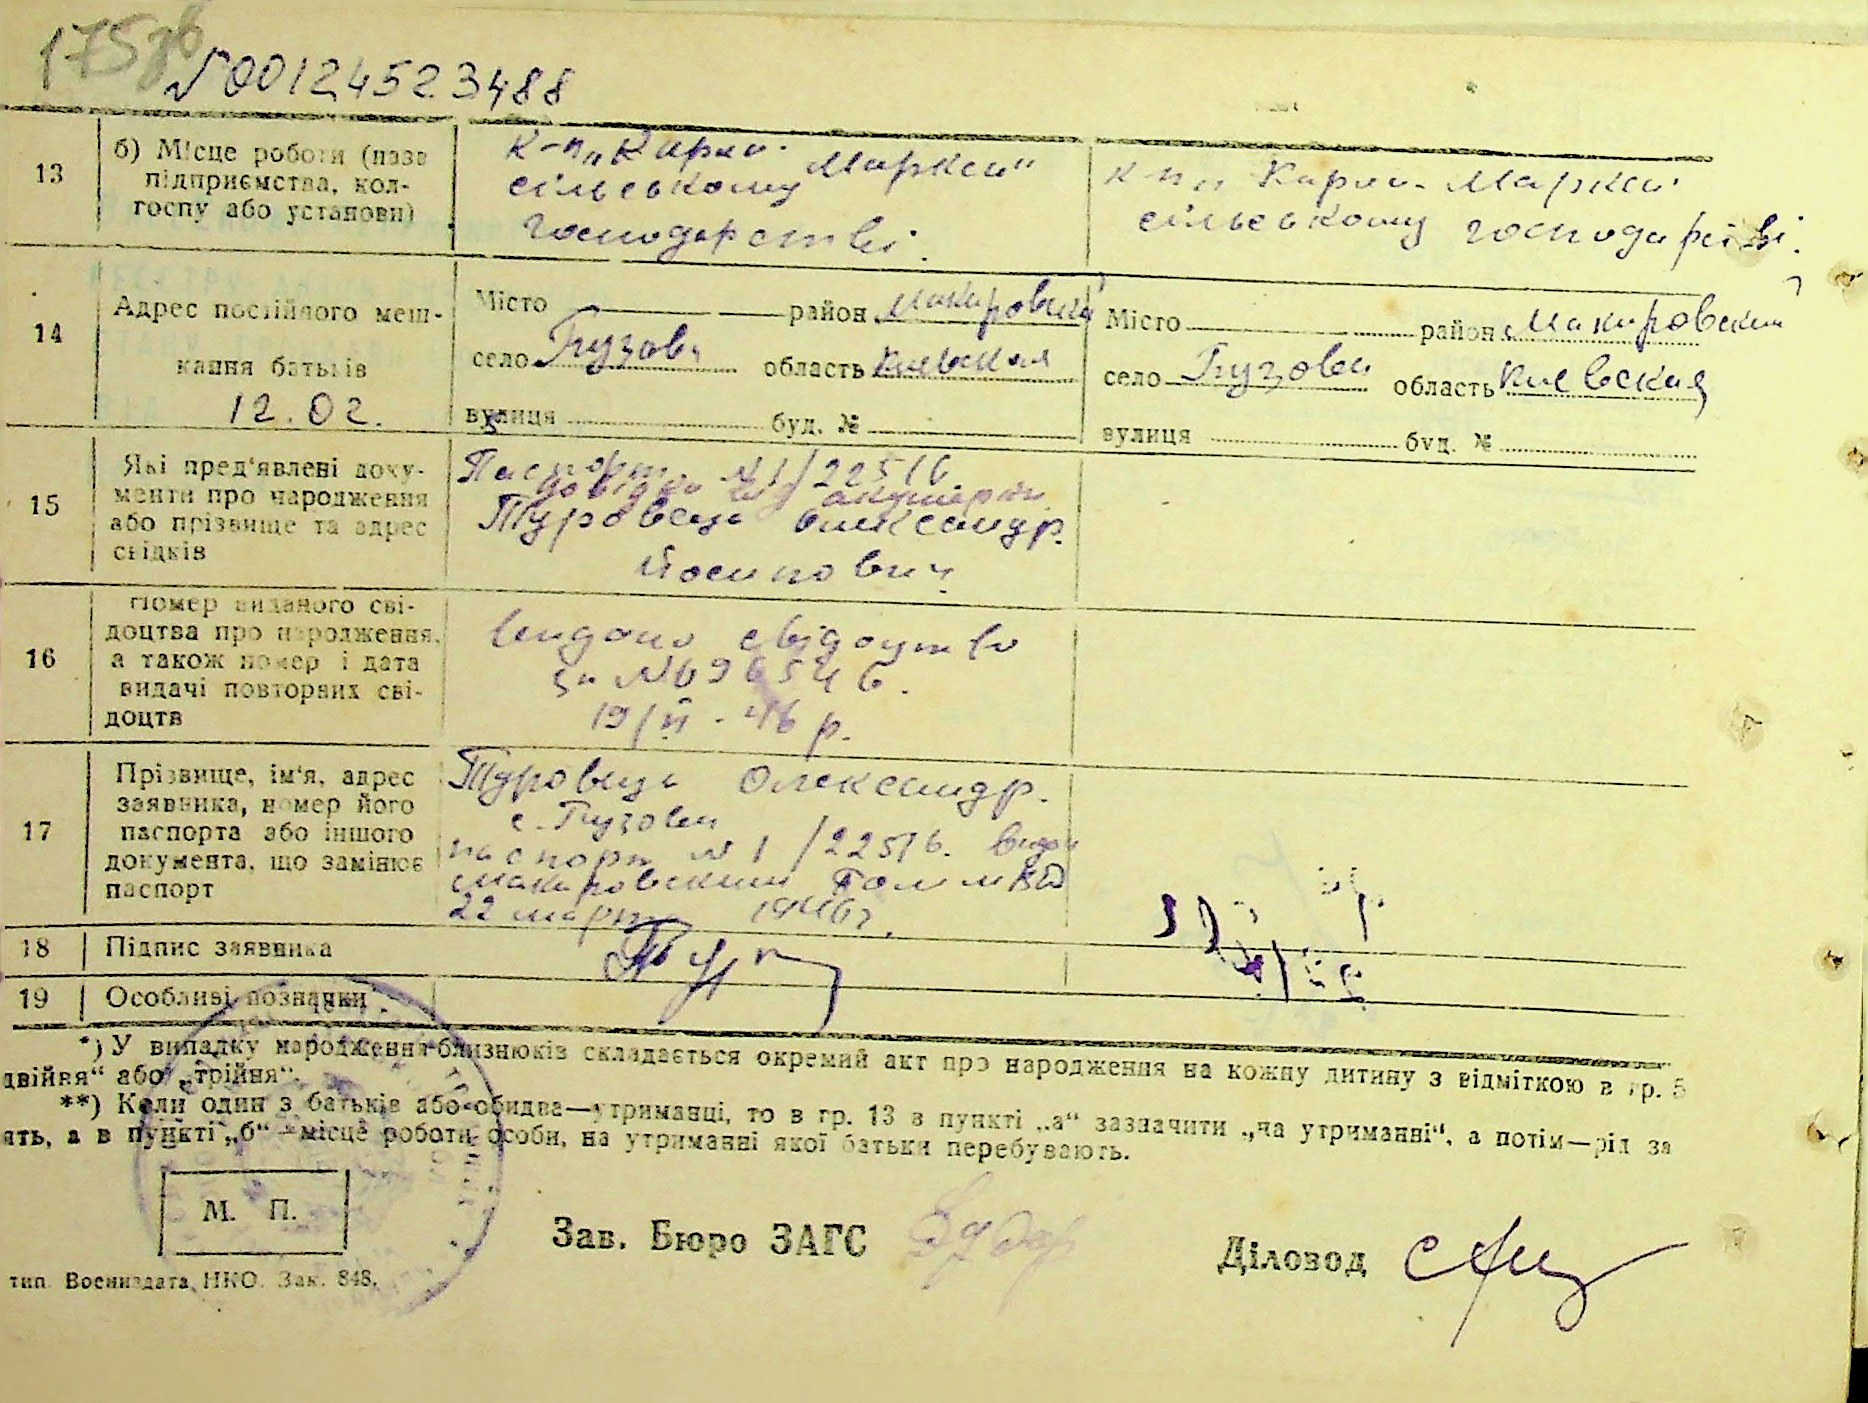 175зв
№00124523488
13
б) Місце роботи (назв
підприємства, кол-
госпу або установи)
к-п „Карла Маркса"
сільському
господарстві.
к-п „Карла-Маркса
сільському господарстві.
14
Адрес постійного меш-
кання батьків
12.02.
Місто район Макаровский
село Грузьке область Киевская
вулиця буд. №
Місто район Макаровский
село область Киевская
вулиця буд. №
15
Які пред'явлені доку-
менти про народження
або прізвище та адрес
свідків
Паспорт №1/22516
довідка від акушерки
Туровець Олександр.
Йосипович
16
Номер виданого сві-
доцтва про народження,
а також номер і дата
видачі повторних сві-
доцтв
Видано свідоцтво
за №696546.
19/II-46 р.
17
Прізвище, ім'я, адрес
заявника, номер його
паспорта або іншого
документа, що замінює
паспорт
Туровець Олександр.
с.
паспорт №1/22516. видан
Макаровским МВД
22 марта 1946г.
18
Підпис заявника
19
Особливі позначки
*) У випадку народження близнюків складається окремий акт про народження на кожну дитину з відміткою в гр. 5
двійня" або „трійня".
**) Коли один з батьків або обидва—утриманці, то в гр. 13 в пункті „а" зазначити „на утриманні", а потім—рід за
ять, а в пункті „б"—місце роботи особи, на утриманні якої батьки перебувають.
М. П.
Зав. Бюро ЗАГС
Діловод
тип. Воениздата НКО. Зак. 848.